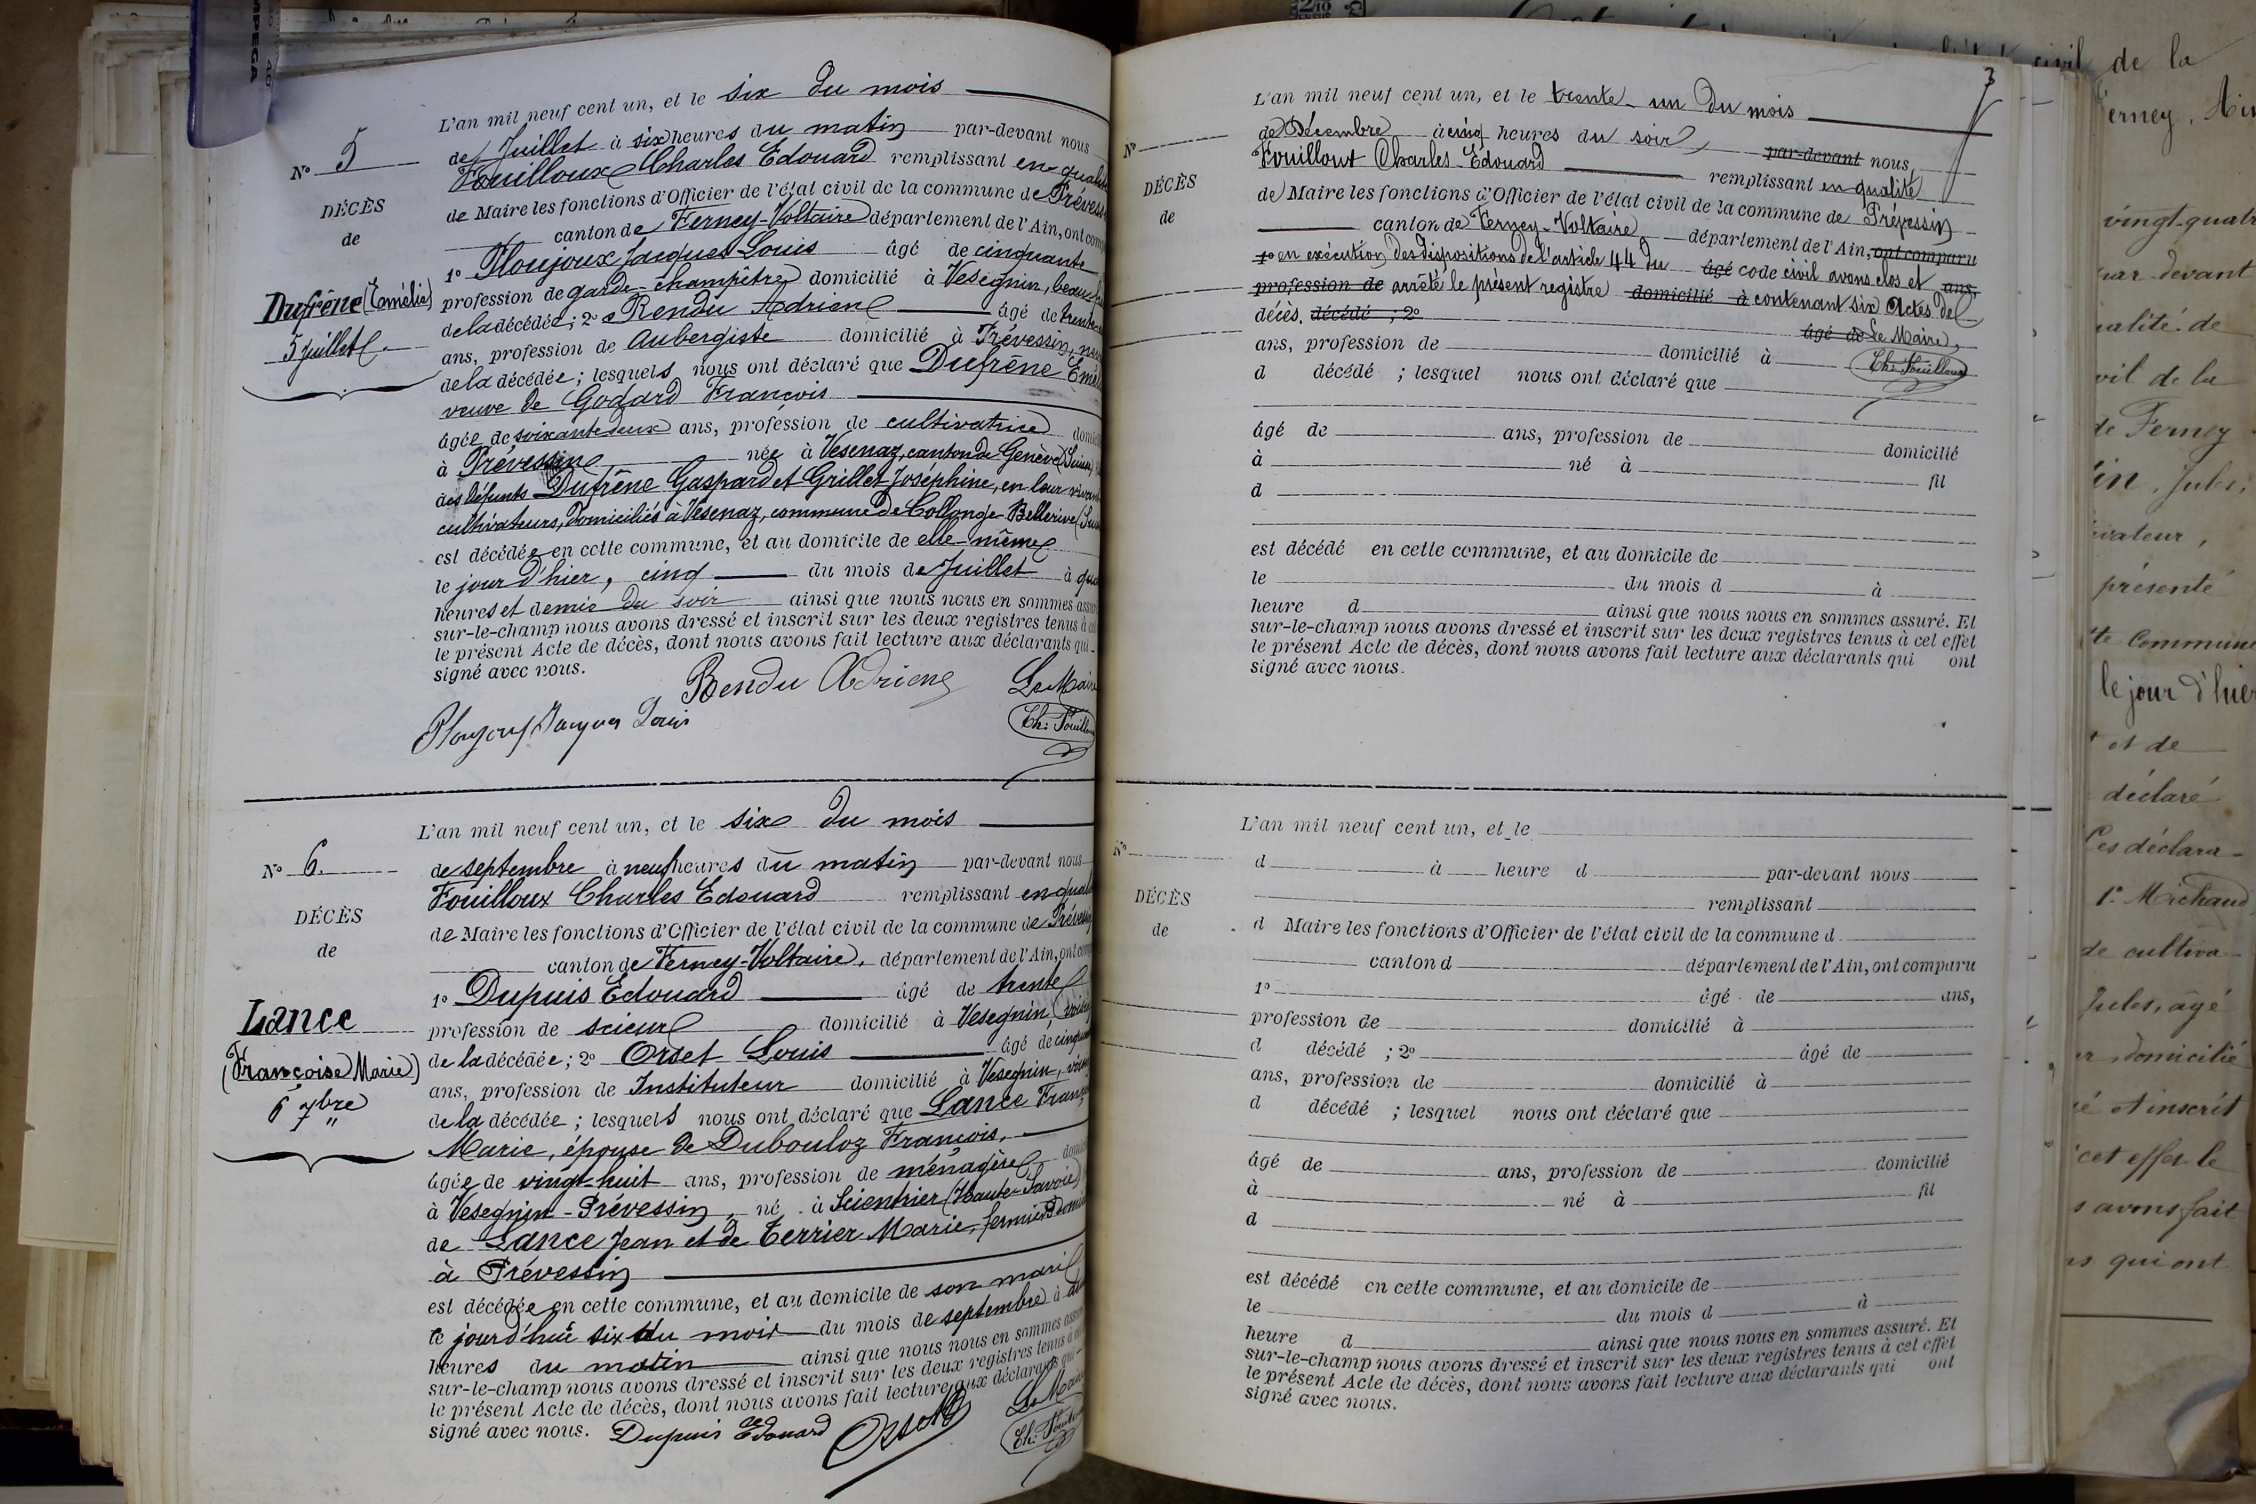 L'an mil neuf cent un, et le six du mois
N° 5
de Juillet à six heures du matin par-devant nous
Fouilloux Charles Edouard remplissant en qualité
DÉCÈS
de Maire les fonctions d'Officier de l'état civil de la commune de
de
canton de Ferney-Voltaire département de l'Ain, ont
1° Ploujoux Jacques Louis âgé de cinquante
Dufrêne (Emélie)
profession de garde-champêtre domicilié à Vesegnin,
5 Juillet
de la décédée ; 2° Rendu Adrien âgé de
ans, profession de Aubergiste domicilié à Prévessin,
de la décédée ; lesquels nous ont déclaré que Dufrêne
veuve de Godard François
âgée de soixante deux ans, profession de cultivatrice
à Prévessin née à Vesenaz, canton de Genève (Suisse)
des défunts Dufrêne Gaspard et Grillet Joséphine, en leur vivant
cultivateurs, domiciliés à Vesenaz, commune de Collonge-Bellerive
est décédée en cette commune, et au domicile de elle-même
le jour d'hier, cinq du mois de Juillet à
heures et demie du soir ainsi que nous nous en sommes
sur-le-champ nous avons dressé et inscrit sur les deux registres tenus à
le présent Acte de décès, dont nous avons fait lecture aux déclarants qui
signé avec nous.
Rendu Adrien
Le Maire
Jacques Louis
Ch: Fouilloux
L'an mil neuf cent un, et le six du mois
N° 6.
de septembre à neuf heures du matin par-devant nous
Fouilloux Charles Edouard remplissant en
DÉCÈS
de Maire les fonctions d'Officier de l'état civil de la commune de Prévessin
de
canton de Ferney-Voltaire, département de l'Ain, ont
1° Dupuis Edouard âgé de trente
Lance
profession de scieur domicilié à Vesegnin, voisin
(Françoise Marie)
de la décédée ; 2° Orset Louis âgé de
6 7bre
ans, profession de Instituteur domicilié à Vesegnin,
de la décédée ; lesquels nous ont déclaré que Lance
Marie, épouse de Dubouloz François,
âgée de vingt-huit ans, profession de ménagère
à Vesegnin-Prévessin, né à Scientrier (Haute-Savoie)
de Lance Jean et de Terrier Marie, fermiers
à Prévessin
est décédée en cette commune, et au domicile de son mari
le jourd'hui six du mois du mois de septembre à
heures du matin ainsi que nous nous en sommes
sur-le-champ nous avons dressé et inscrit sur les deux registres tenus à
le présent Acte de décès, dont nous avons fait lecture aux déclarants qui
signé avec nous. Dupuis Edouard Orset
Le Maire
Ch: Fouilloux
L'an mil neuf cent un, et le trente-un du mois
N°
de Décembre à cinq heures du soir, par-devant nous
Fouilloux Charles Edouard remplissant en qualité
DÉCÈS
de Maire les fonctions d'Officier de l'état civil de la commune de Prévessin
de
canton de Ferney-Voltaire département de l'Ain, ont comparu
1° en exécution des dispositions de l'article 44 du âgé code civil avons clos et ans,
profession de arrêté le présent registre domicilié à contenant six Actes de
décès. décédé ; 2° âgé de Le Maire,
ans, profession de domicilié à Ch: Fouilloux
d décédé ; lesquel nous ont déclaré que
âgé de ans, profession de domicilié
à né à fil
d
est décédé en cette commune, et au domicile de
le du mois d à
heure d ainsi que nous nous en sommes assuré. Et
sur-le-champ nous avons dressé et inscrit sur les deux registres tenus à cet effet
le présent Acte de décès, dont nous avons fait lecture aux déclarants qui ont
signé avec nous.
L'an mil neuf cent un, et le
N°
d à heure d par-devant nous
remplissant
DÉCÈS
d Maire les fonctions d'Officier de l'état civil de la commune d
de
canton d département de l'Ain, ont comparu
1° âgé de ans,
profession de domicilié à
d décédé ; 2° âgé de
ans, profession de domicilié à
d décédé ; lesquel nous ont déclaré que
âgé de ans, profession de domicilié
à né à fil
d
est décédé en cette commune, et au domicile de
le du mois d à
heure d ainsi que nous nous en sommes assuré. Et
sur-le-champ nous avons dressé et inscrit sur les deux registres tenus à cet effet
le présent Acte de décès, dont nous avons fait lecture aux déclarants qui ont
signé avec nous.
civil de la
vingt-quatr
devant
de
de la
de Ferney
Jules,
présenté
commune
le jour d'hier
et de
déclaré
Ces déclara-
1° Michaud
de cultiva-
Jules, âgé
domicilié
et inscrit
cet effet le
avons fait
qui ont